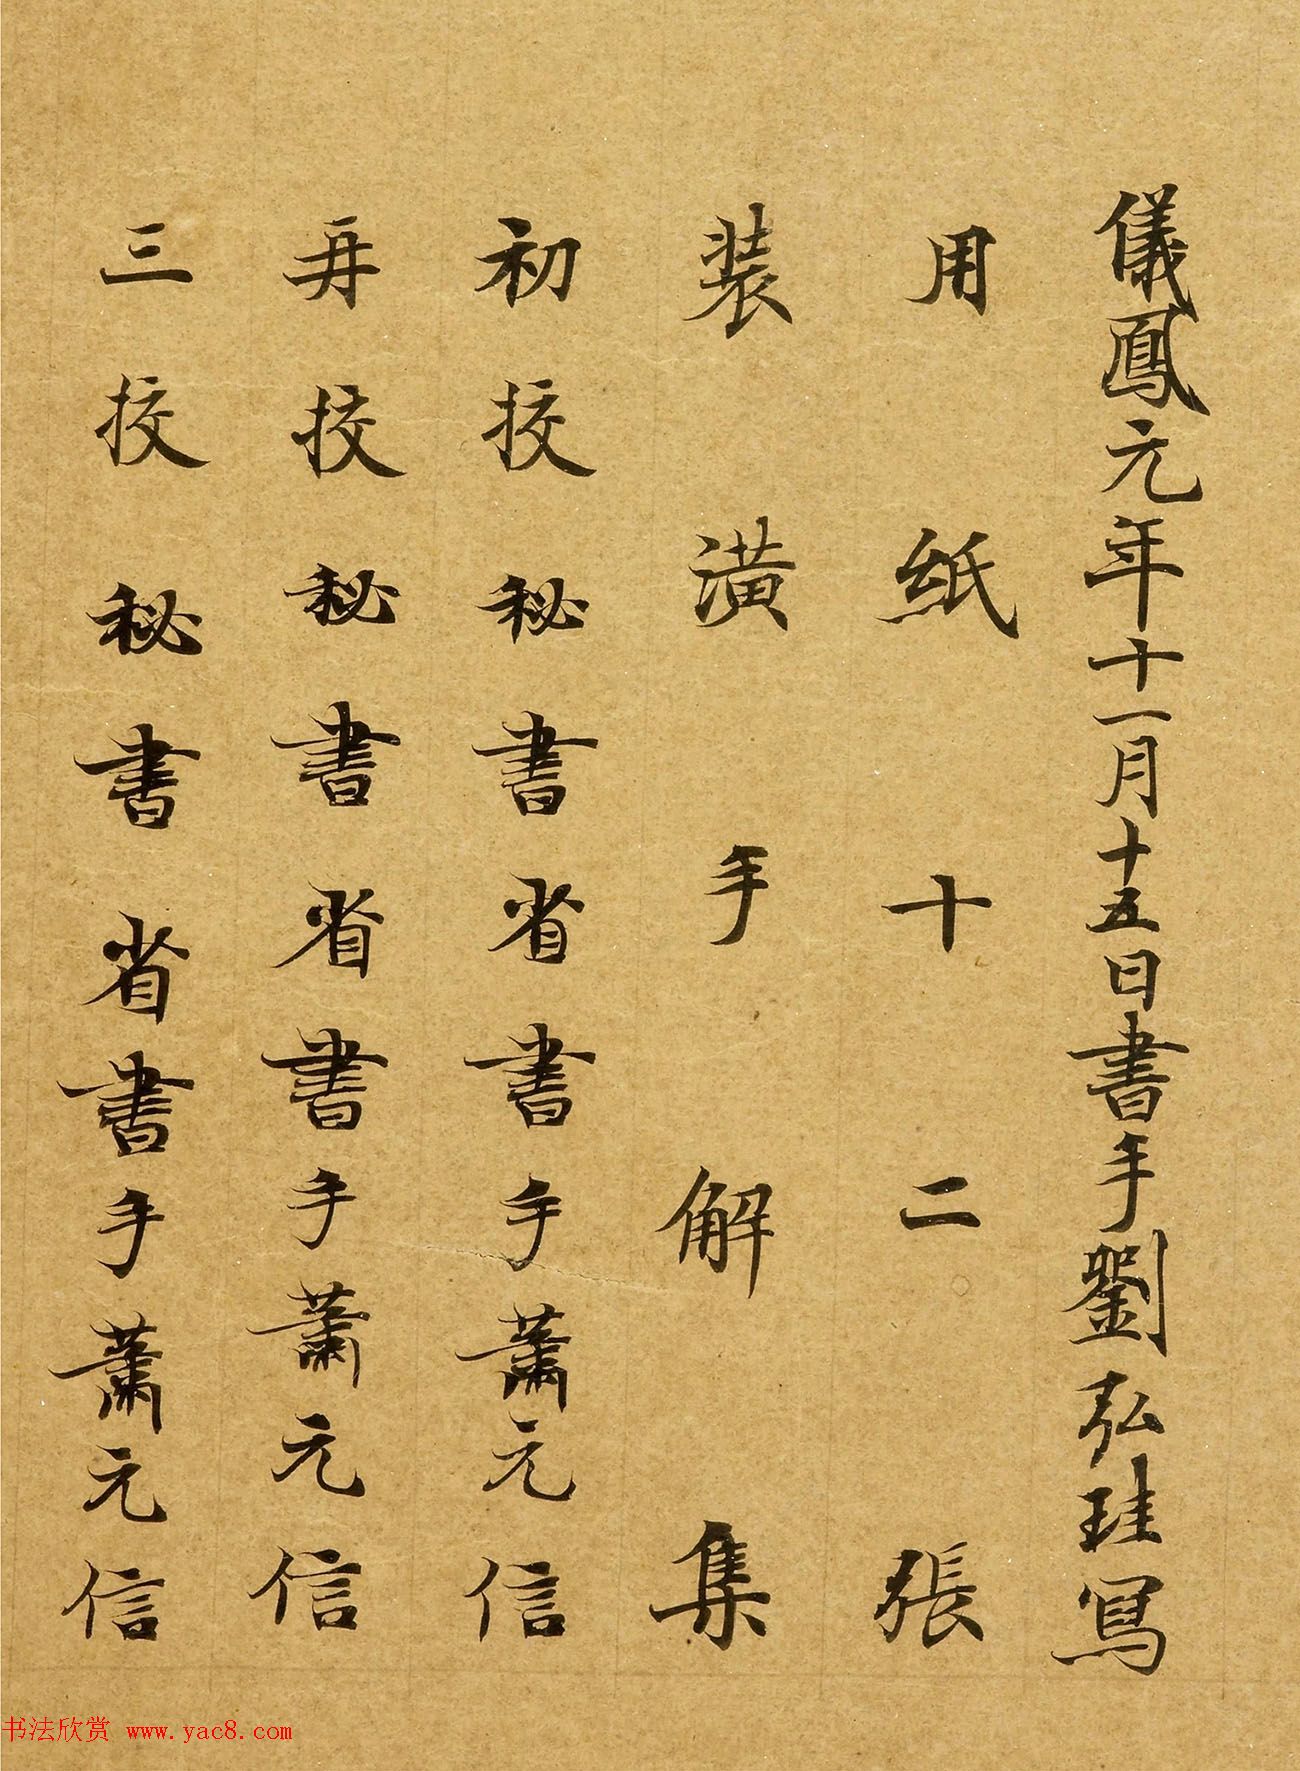 儀鳳元年十一月十五日書手劉弘珪寫
用紙十二張
装潢手解集
初挍秘書省書手蕭元信
再挍秘書省書手蕭元信
三挍秘書省書手蕭元信
书法欣赏 www.yac8.com